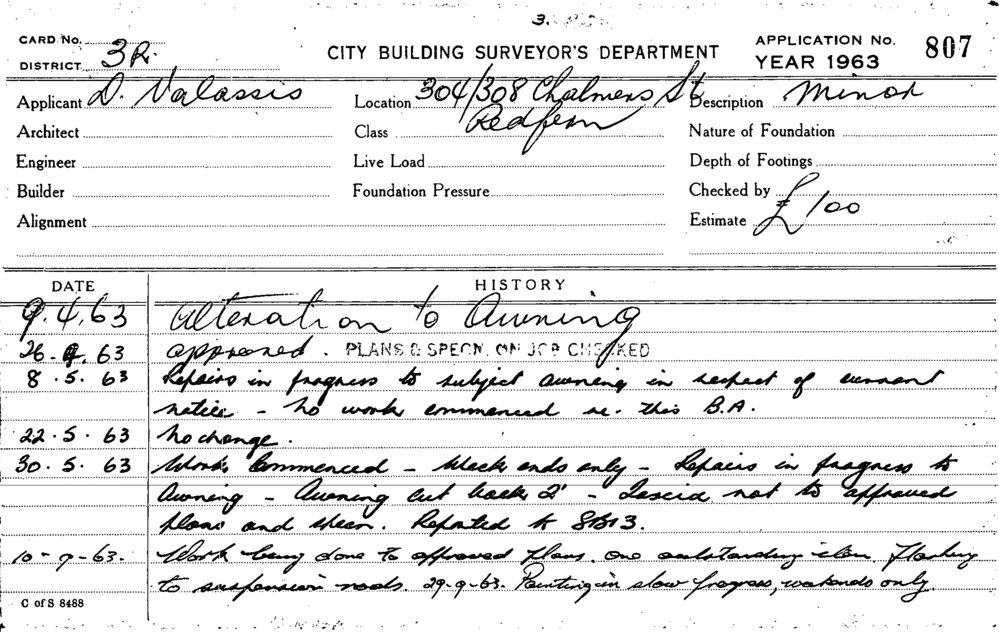 3.
CARD No.
DISTRICT 3R.
CITY BUILDING SURVEYOR'S DEPARTMENT
APPLICATION No. 807
YEAR 1963
Applicant D. Valassis
Location 304/308 Chalmers St
Redfern
Description Minor
Architect
Class
Nature of Foundation
Engineer
Live Load
Depth of Footings
Builder
Foundation Pressure
Checked by
Alignment
Estimate £100
DATE HISTORY
9.4.63 Alteration to Awning
26.4.63 approved. PLANS & SPECN. ON JOB CHECKED
8.5.63 Repairs in progress to subject awning in respect of current
notice - no work commenced re. this B.A.
22.5.63 No change.
30.5.63 Work Commenced - Week ends only - Repairs in progress to
Awning - Awning cut back 2' - Fascia not to approved
plans and specn. Reported to
10-9-63. Work being done to approved plans. one outstanding item. Flashing
to suspension rods. 29-9-63. Painting in slow progress, weekends only.
C of S 8488